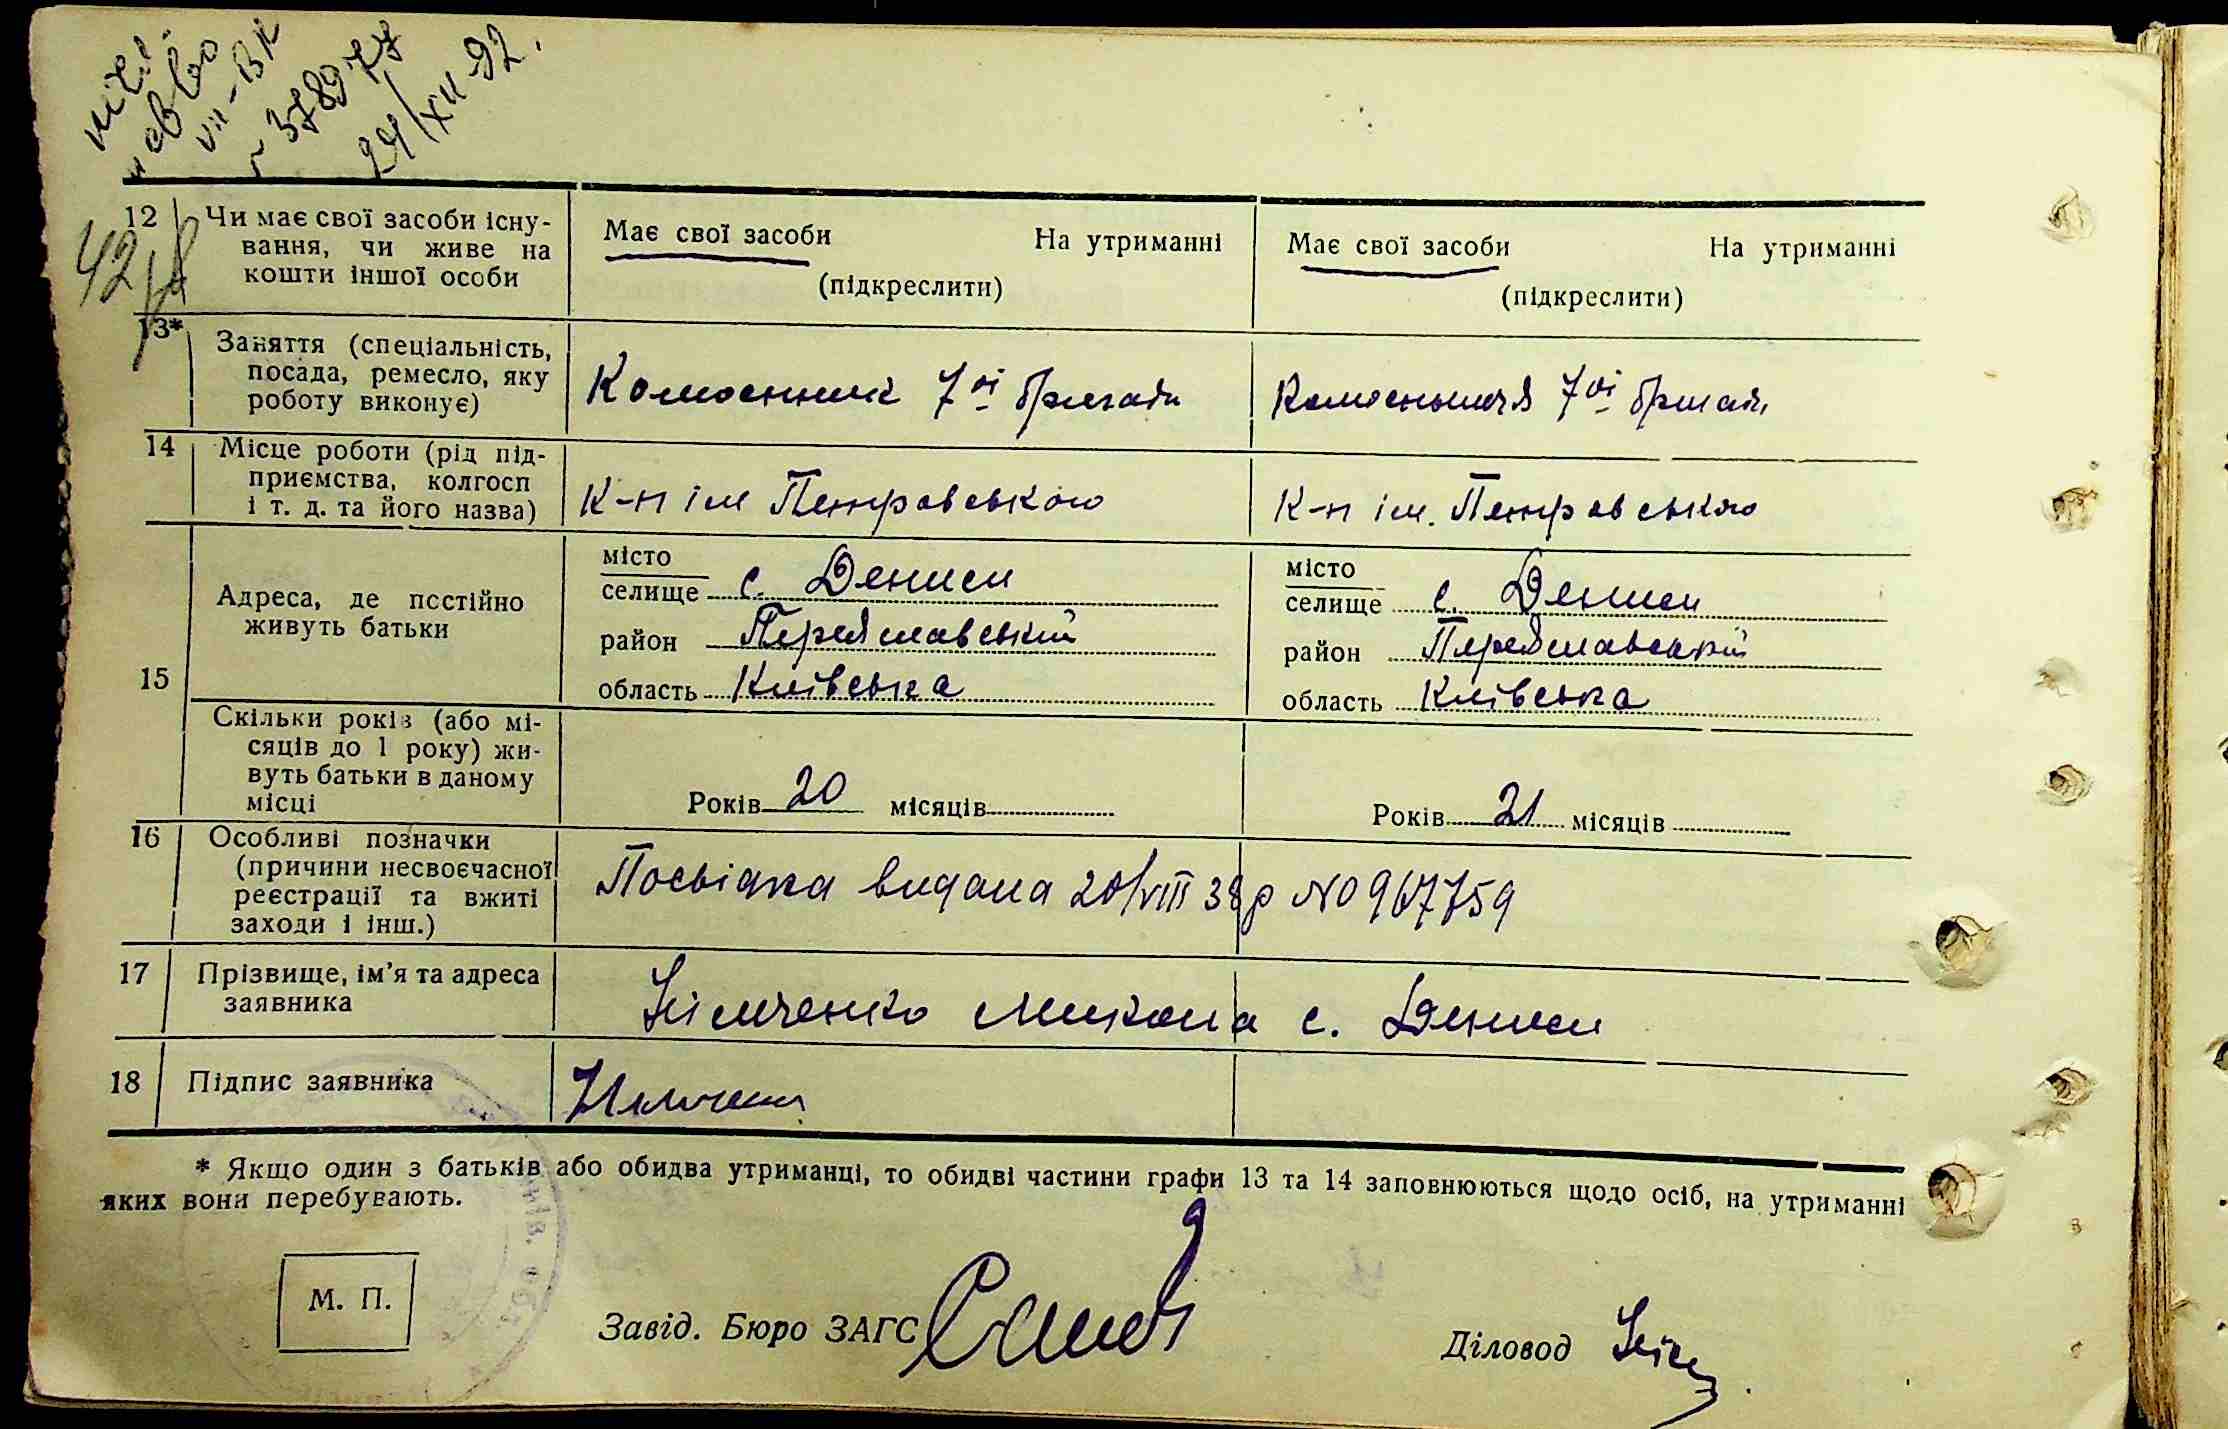 VII-ВК
378977
24/XII-92.
42
12 Чи має свої засоби існу-
вання, чи живе на
кошти іншої особи
Має свої засоби На утриманні
(підкреслити)
Має свої засоби На утриманні
(підкреслити)
13* Заняття (спеціальність,
посада, ремесло, яку
роботу виконує)
7ої бригади
7ої бригади
14 Місце роботи (рід під-
приємства, колгосп
і т. д. та його назва)
К-п ім Петровського
К-п ім. Петровського
15
Адреса, де постійно
живуть батьки
місто
селище с. Дениси
район Переяславський
область Київська
місто
селище с. Дениси
район Переяславський
область Київська
Скільки років (або мі-
сяців до 1 року) жи-
вуть батьки в даному
місці
Років 20 місяців
Років 21 місяців
16 Особливі позначки
(причини несвоєчасної
реєстрації та вжиті
заходи і інш.)
Посвідка видана 20/VIII 38р № 0967759
17 Прізвище, ім'я та адреса
заявника
Німченко Микола с. Дениси
18 Підпис заявника
* Якщо один з батьків або обидва утриманці, то обидві частини графи 13 та 14 заповнюються щодо осіб, на утриманні
яких вони перебувають.
М. П.
Завід. Бюро ЗАГС
Діловод